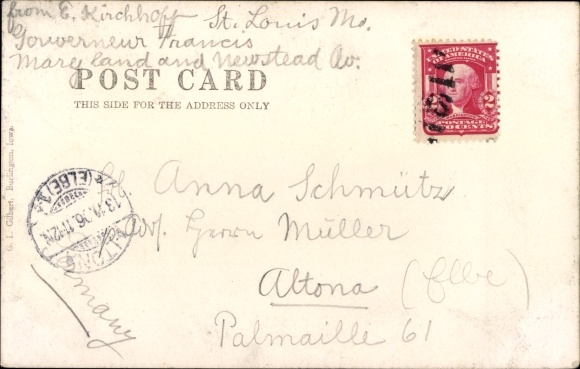 from E. Kirchhoff St. Louis Mo.
Gouverneur Francis
Maryland and Newstead Av.
POST CARD
THIS SIDE FOR THE ADDRESS ONLY
UNITED STATES
OF AMERICA
2 2
POSTAGE
TWO CENTS
G. I. Gilbert, Burlington, Iowa.
ALTONA
(ELBE) 1
11-12
Frl. Anna Schmütz
Adr. Herrn Müller
Altona (Elbe)
Palmaille 61
Germany